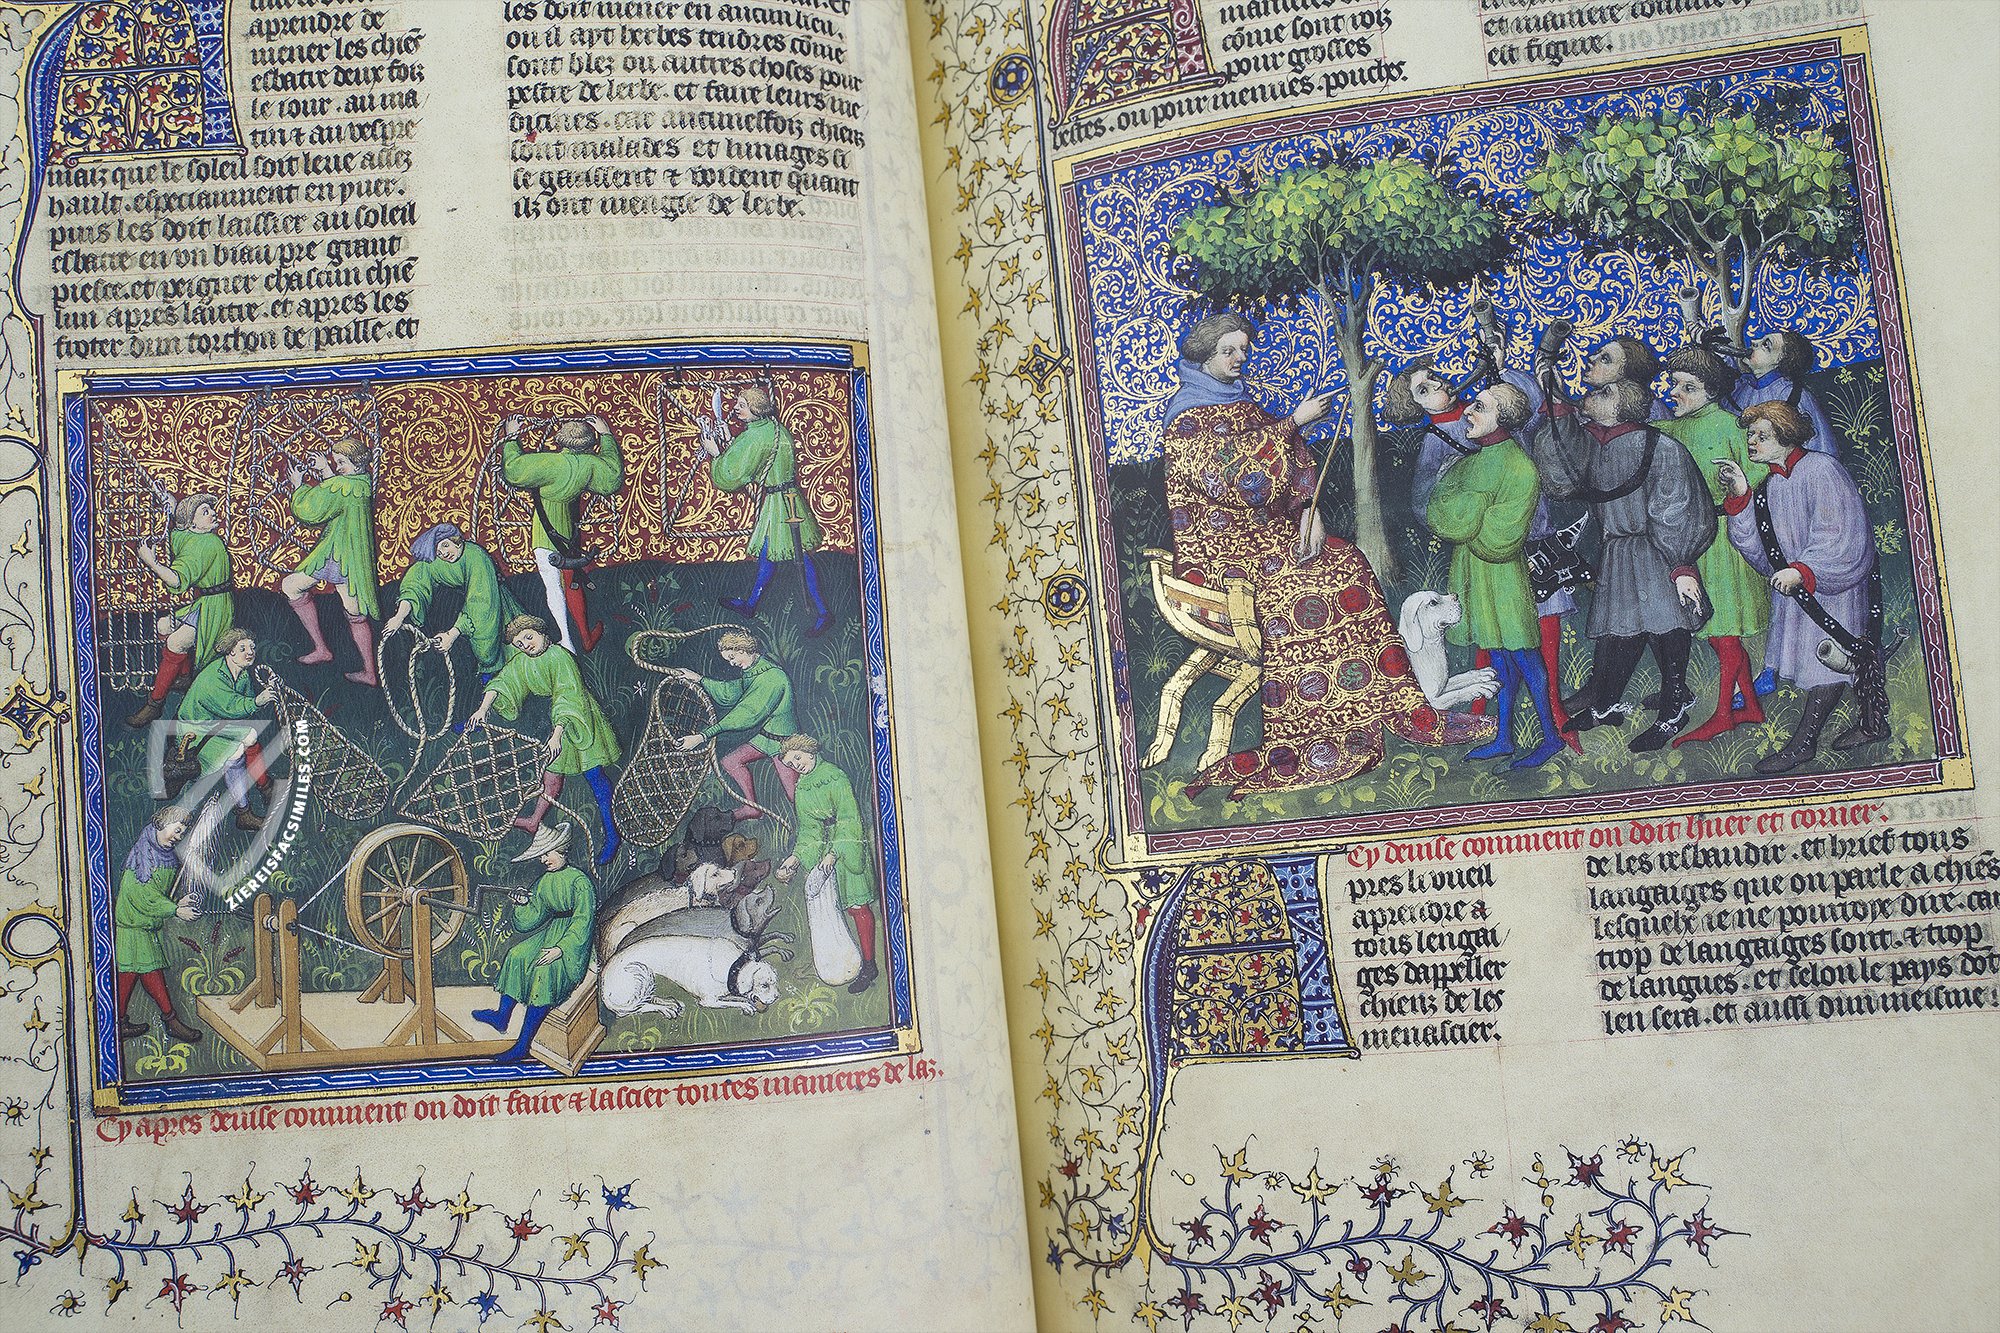 aprendre de
mener les chiẽs
esbatre deux foiz
le iour. au ma
tin et au vespre
maiz que le soleil soit leue assez
hault. especiaument en yuer.
puis les doit laissier au soleil
esbatre en un biau pre grant
piesce. et peigner chascun chiẽ
lun apres lautre. et apres les
froter dun torchon de paille. et
les doit mener en aucun lieu.
ou il ayt herbes tendres cõme
sont blez ou autres choses pour
pestre de lerbe. et faire leurs me
dicines. car aucunesfoiz chienz
sont malades et
se et voident quant
ilz ont mengie de lerbe.
Cy apres deuise comment on doit faire et lascier toutes manieres de laz.
cõme sont
pour grosses
bestes. ou pour menues.
et maniere comme
est figure.
Cy deuise comment on doit huer et corner.
pres li vueil
aprendre a
tous lengai
ges dappeller
chienz de les
menascier.
de les resbaudir. et brief tous
langaiges que on parle a chiẽs
lesquelx ie ne pourroye dire. car
trop de langaiges sont. et trop
de langues. et selon le pays dõt
len sera. et aussi dun meisme
ZIEREISFACSIMILES.COM